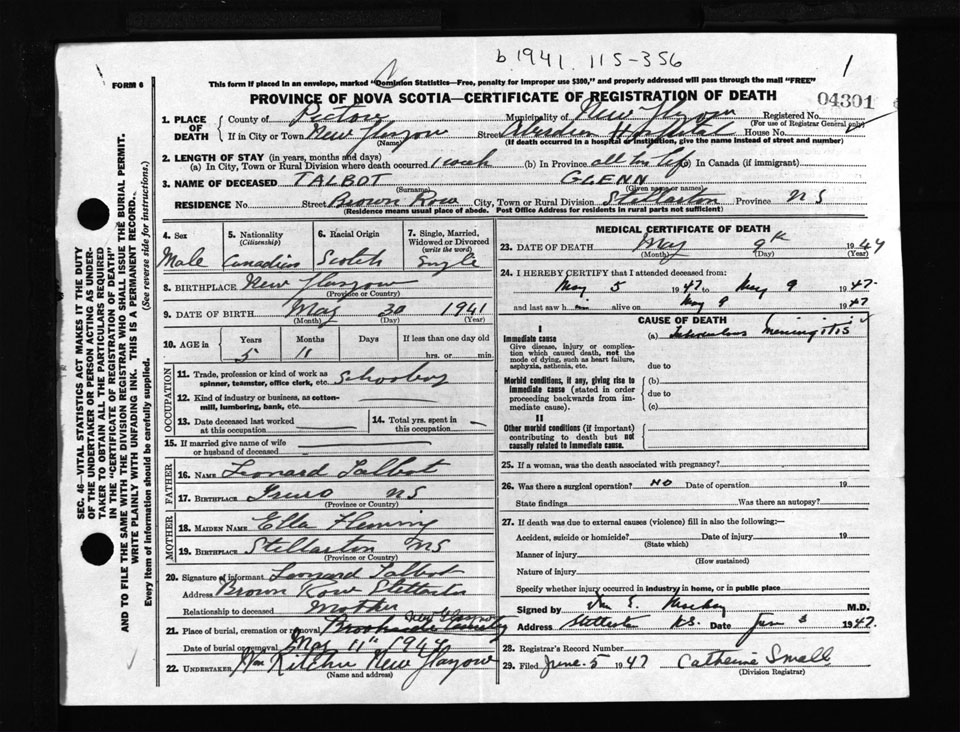 b. 1941. 115-356
1
FORM 6
This form if placed in an envelope, marked "Dominion Statistics—Free, penalty for improper use $300," and properly addressed will pass through the mail "FREE"
PROVINCE OF NOVA SCOTIA—CERTIFICATE OF REGISTRATION OF DEATH
04301
1. PLACE OF DEATH
County of Pictou Municipality of New Glasgow Registered No.
(For use of Registrar General only)
If in City or Town New Glasgow Street Aberdeen Hospital House No.
(Name) (If death occurred in a hospital or institution, give the name instead of street and number)
2. LENGTH OF STAY (in years, months and days)
(a) In City, Town or Rural Division where death occurred 1 week (b) In Province all his life (c) In Canada (if immigrant)
3. NAME OF DECEASED TALBOT GLENN
(Surname) (Given name or names)
RESIDENCE No. Street Brown Row City, Town or Rural Division Stellarton Province N S
(Residence means usual place of abode. Post Office Address for residents in rural parts not sufficient)
4. Sex
Male
5. Nationality
(Citizenship)
Canadian
6. Racial Origin
Scotch
7. Single, Married, Widowed or Divorced
(write the word)
Single
8. BIRTHPLACE New Glasgow
(Province or Country)
9. DATE OF BIRTH May 30 1941
(Month) (Day) (Year)
10. AGE in
Years Months Days If less than one day old
5 11 hrs. or min.
OCCUPATION
11. Trade, profession or kind of work as spinner, teamster, office clerk, etc. Schoolboy
12. Kind of industry or business, as cotton-mill, lumbering, bank, etc.
13. Date deceased last worked at this occupation
14. Total yrs. spent in this occupation
15. If married give name of wife or husband of deceased
FATHER
16. NAME Leonard Talbot
17. BIRTHPLACE Truro NS
MOTHER
18. MAIDEN NAME Ella Fleming
19. BIRTHPLACE Stellarton NS
(Province or Country)
20. Signature of informant Leonard Talbot
Address Brown Row Stellarton
Relationship to deceased Mother
21. Place of burial, cremation or removal New Glasgow
Date of burial or removal May 11" 1947
22. UNDERTAKER Wm Ritchie New Glasgow
(Name and address)
MEDICAL CERTIFICATE OF DEATH
23. DATE OF DEATH May 9th 1947
(Month) (Day) (Year)
24. I HEREBY CERTIFY that I attended deceased from:
May 5 1947 to May 9 1947.
and last saw him alive on May 9 1947
CAUSE OF DEATH
I
Immediate cause
Give disease, injury or complication which caused death, not the mode of dying, such as heart failure, asphyxia, asthenia, etc.
(a) Tuberculous meningitis
due to
Morbid conditions, if any, giving rise to immediate cause (stated in order proceeding backwards from immediate cause).
(b)
due to
(c)
II
Other morbid conditions (if important) contributing to death but not causally related to immediate cause.
25. If a woman, was the death associated with pregnancy?
26. Was there a surgical operation? NO Date of operation 19
State findings Was there an autopsy?
27. If death was due to external causes (violence) fill in also the following:—
Accident, suicide or homicide? Date of injury 19
(State which)
Manner of injury
(How sustained)
Nature of injury
Specify whether injury occurred in industry in home, or in public place
Signed by M.D.
Address Stellarton N.S. Date June 3 1947.
28. Registrar's Record Number
29. Filed June. 5 1947 Catherine Small
(Division Registrar)
SEC. 46—VITAL STATISTICS ACT MAKES IT THE DUTY
OF THE UNDERTAKER OR PERSON ACTING AS UNDERTAKER TO OBTAIN ALL THE PARTICULARS REQUIRED
IN THE "CERTIFICATE OF REGISTRATION OF DEATH"
AND TO FILE THE SAME WITH THE DIVISION REGISTRAR WHO SHALL ISSUE THE BURIAL PERMIT.
WRITE PLAINLY WITH UNFADING INK. THIS IS A PERMANENT RECORD.
Every item of information should be carefully supplied. (See reverse side for instructions.)